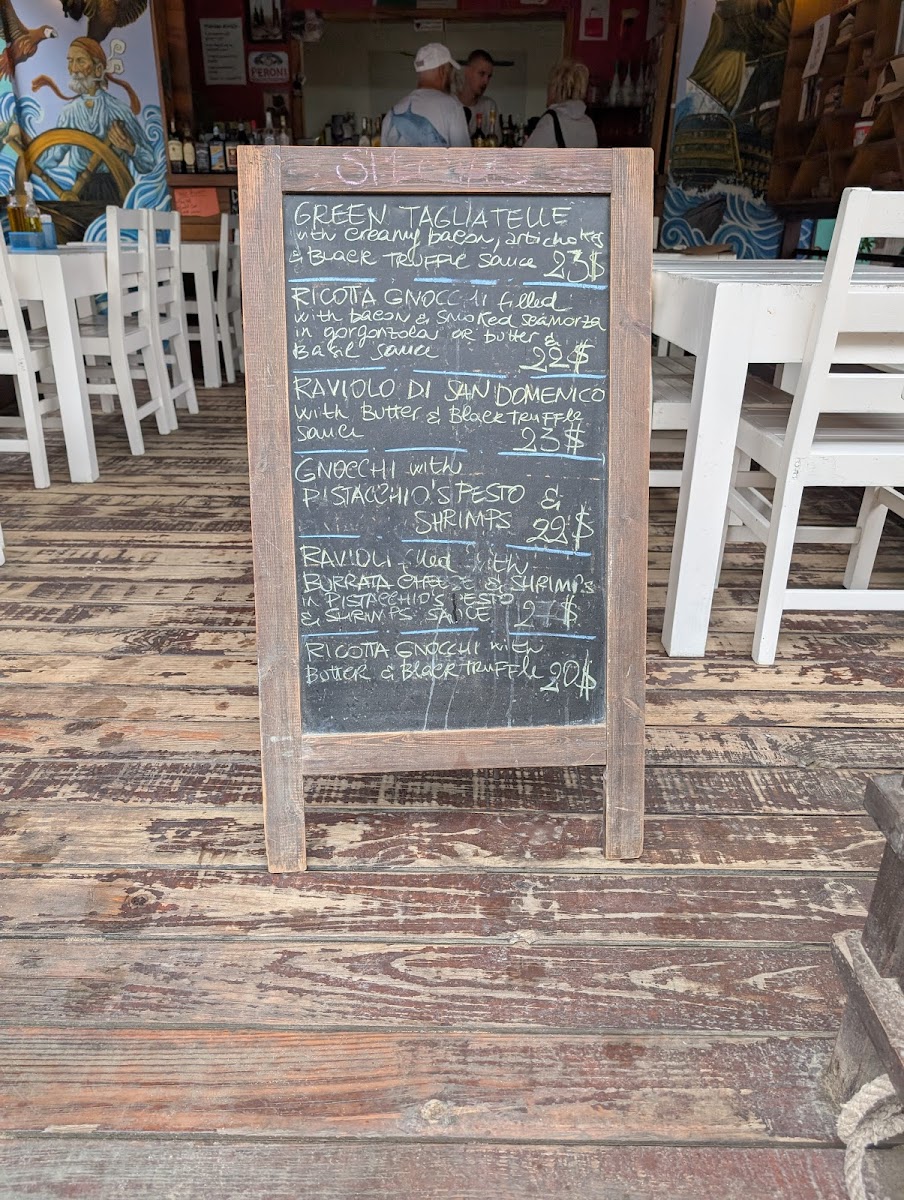 PERONI
SPECIALS
GREEN TAGLIATELLE
with creamy bacon, artichokes
& BLACK TRUFFLE SAUCE 23$
RICOTTA GNOCCHI filled
with bacon & smoked scamorza
in gorgonzola or butter &
Basil sauce 22$
RAVIOLO DI SAN DOMENICO
with Butter & Black TRUFFLE
sauce 23$
GNOCCHI with
PISTACCHIO'S PESTO &
SHRIMPS 22$
RAVIOLI filled with
BURRATA CHEESE & SHRIMPS
in PISTACCHIO'S PESTO
& SHRIMPS SAUCE 27$
RICOTTA GNOCCHI with
BUTTER & BLACK TRUFFLE 20$